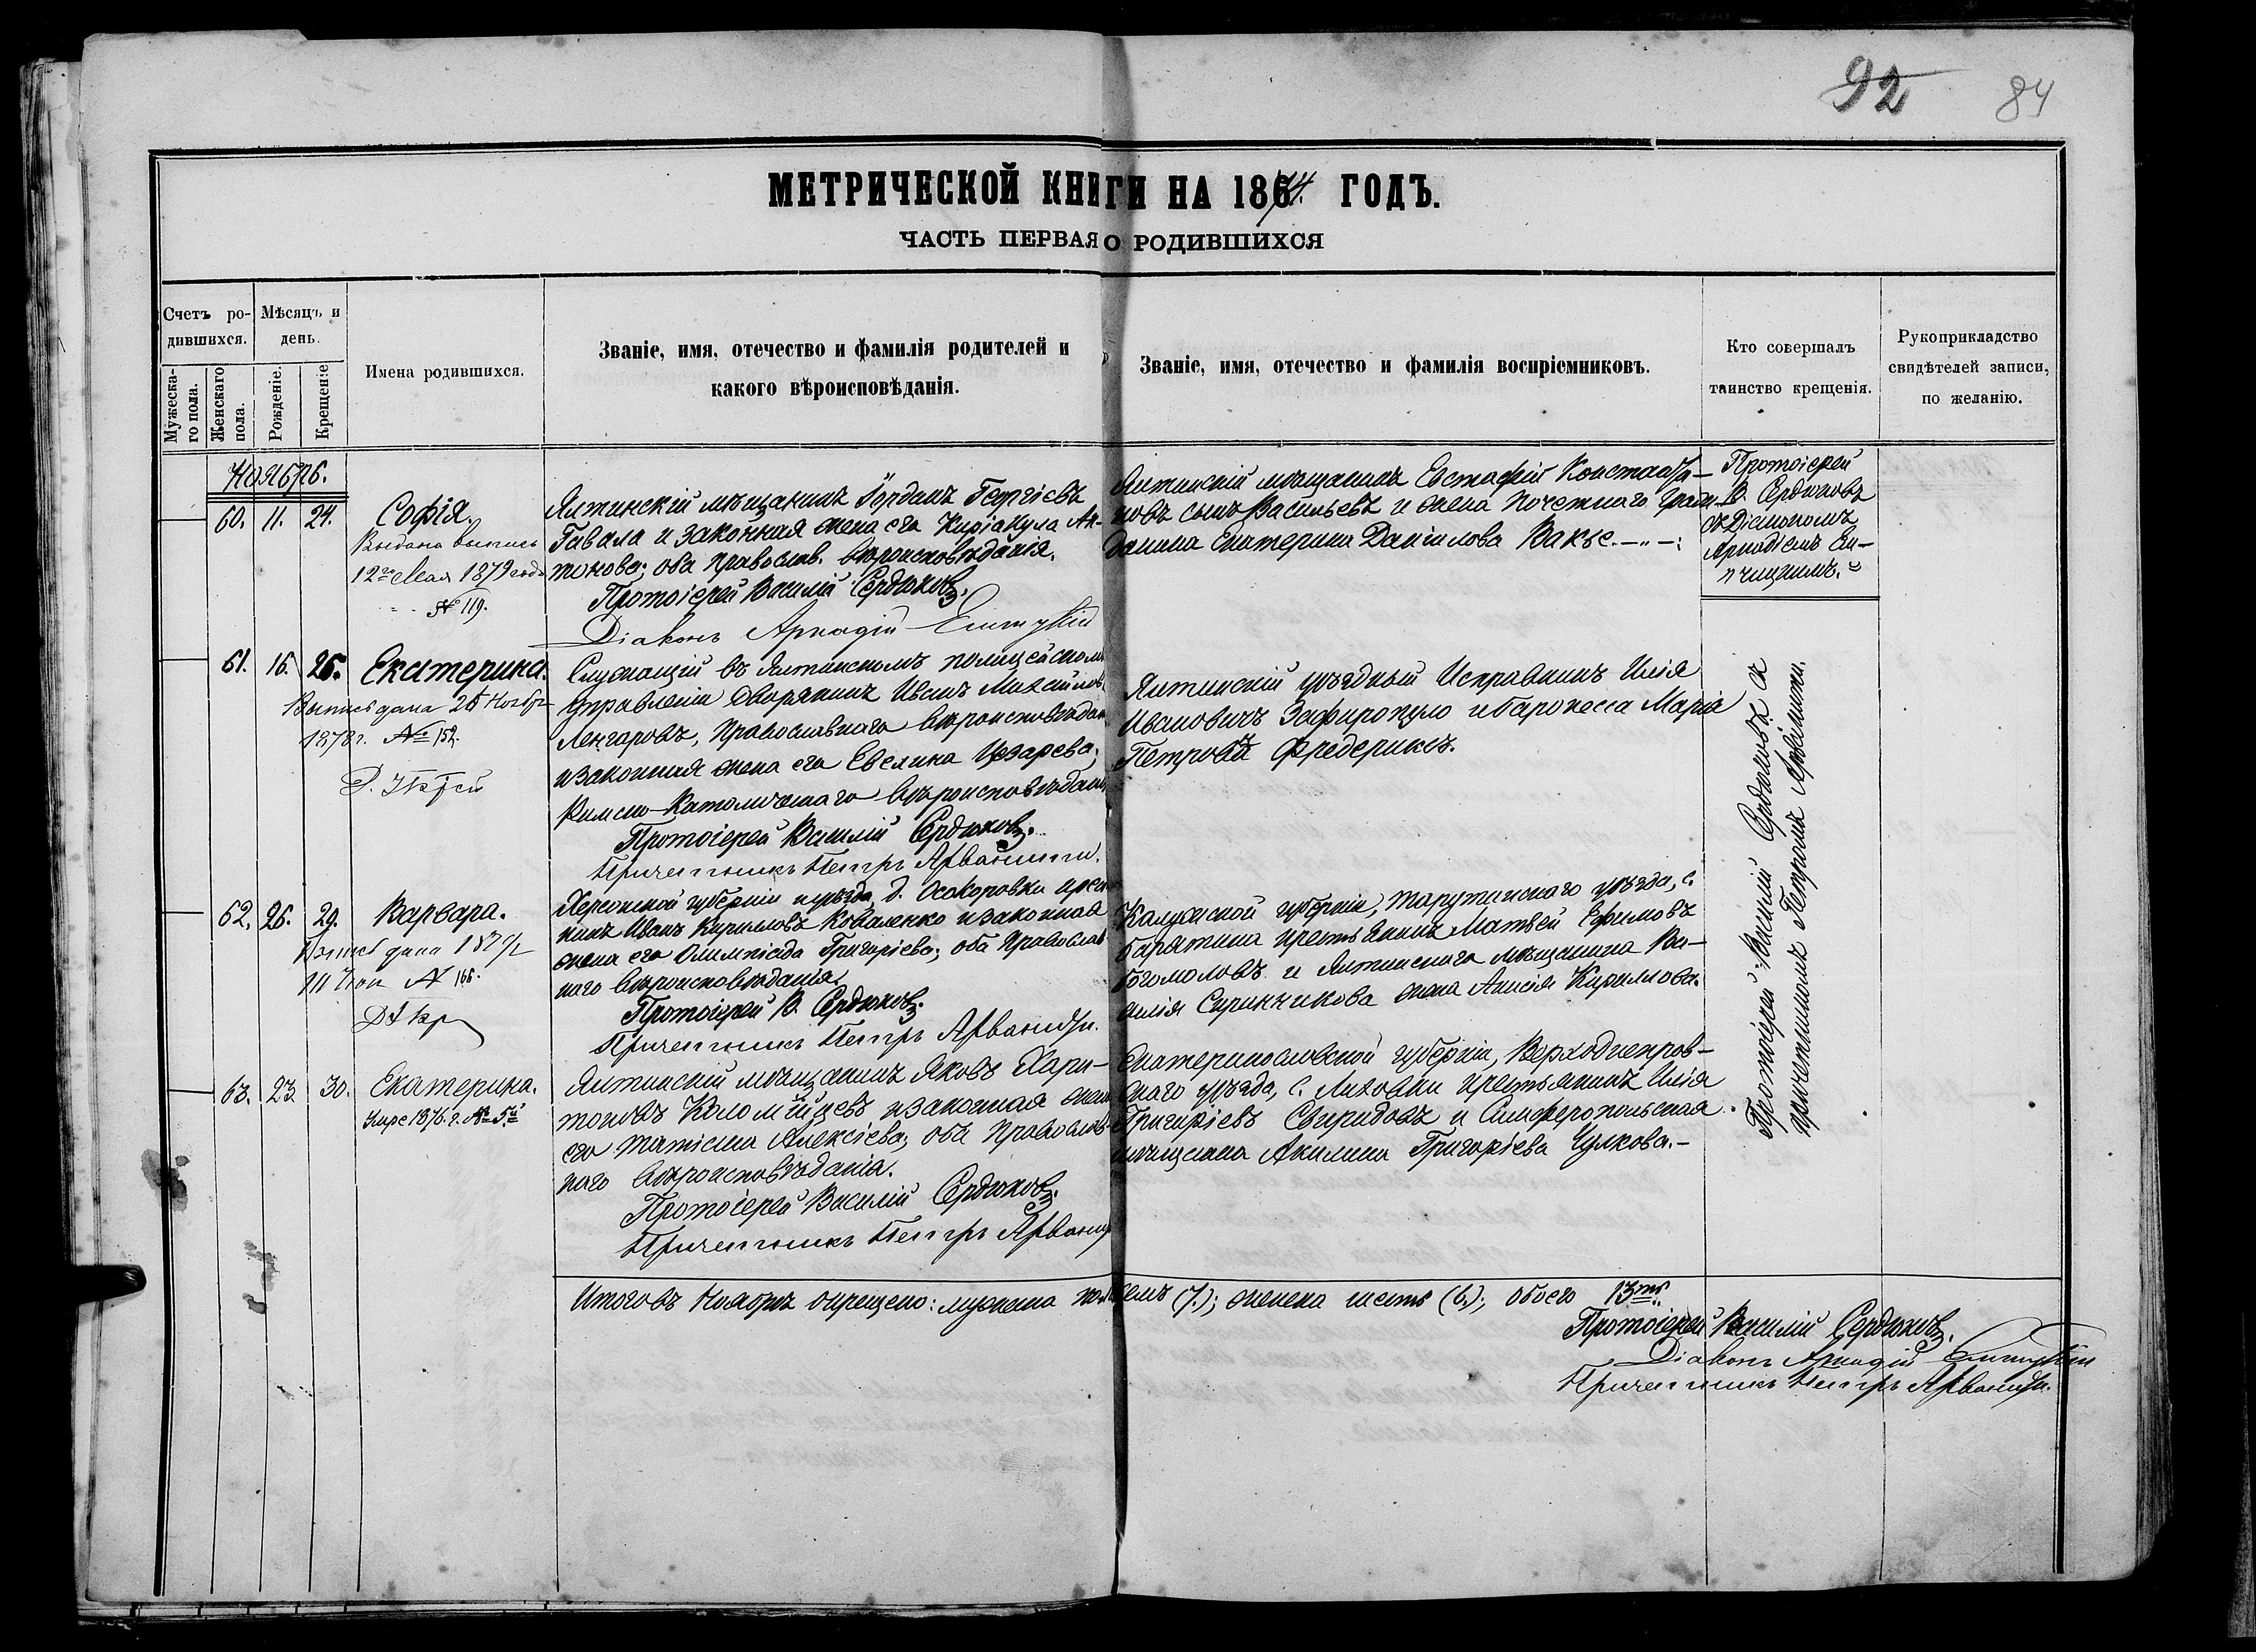 92 84
МЕТРИЧЕСКОЙ КНИГИ НА 1874 ГОДЪ.
ЧАСТЬ ПЕРВАЯ О РОДИВШИХСЯ
Счетъ ро-
дившихся.
Мужеска-
го пола.
Женскаго
пола.
Мѣсяцъ и
день.
Рожденіе.
Крещеніе
Имена родившихся.
Званіе, имя, отечество и фамилія родителей и
какого вѣроисповѣданія.
Званіе, имя, отечество и фамилія воспріемниковъ.
Кто совершалъ
таинство крещенія.
Рукоприкладство
свидѣтелей записи,
по желанію.
Ноябрь.
60. 11. 24. Софія.
Выдана выпись
12го Мая 1879 года
№ 119.
Ялтинскій мѣщанинъ Іорданъ Георгіевъ
Гавала и законная жена его Киріакула Ан-
тонова; оба православ. вѣроисповѣданія.
Протоіерей Василій Сердюковъ.
Діаконъ Аркадій
Ялтинскій мѣщанинъ Евстафій Константи-
новъ сынъ Васильевъ и жена почетнаго гражда-
данина Екатерина Даніилова Ваксе.
Протоіерей
В. Сердюковъ
съ Діакономъ
Аркадіемъ Ем-
61. 16. 26. Екатерина.
Выпись дана 26 Ноябр
1878 г. № 152.
Служащій въ Ялтинскомъ полицейском
Управленіи Дворянинъ Иванъ Михайлов
Ленгаровъ, Православнаго вѣроисповѣдан
и законная жена его Евелина Цезарева,
Римско-Католическаго вѣроисповѣдані
Протоіерей Василій Сердюковъ.
Причетникъ Петръ Арванити.
Ялтинскій уѣздный Исправникъ Илія
Ивановичъ Зафиропуло и баронесса Марія
Петровна Фредериксъ.
Протоіерей Василій Сердюковъ съ
причетникомъ Петромъ Арванитки.
62. 26. 29. Варвара.
Выпись дана 187
№ 166.
Херсонской губерніи и уѣзда, д. Осокоровки крестья
нинъ Иванъ Кирилловъ Коваленко и законная
жена его Олимпіада Григоріева; оба Православ
наго вѣроисповѣданія.
Протоіерей В. Сердюковъ.
Причетникъ Петръ Арванити.
Калужской губерніи, Тарутинскаго уѣзда, с.
Барятина крестьянинъ Матвей Ефимовъ
Богомоловъ и Ялтинскаго мѣщанина Ва-
силія Скринчикова жена Анисія Кириллова.
63. 23 30. Екатерина.
1876. г. № 5й
Ялтинскій мѣщанинъ Яковъ Хари-
тоновъ Коломійцевъ и законная жена
его Татіана Алексіева; оба Православ
наго вѣроисповѣданія.
Протоіерей Василій Сердюковъ.
Причетникъ Петръ Арванит
Екатеринославской губерніи, Верходнепров-
скаго уѣзда, с. Лиховки крестьянинъ Илія
Григоріевъ Свиридовъ и Симферопольская
мѣщанка Акилина Григоріева Чулкова.-
Итого въ Ноябрѣ окрещено: мужеска пол семь (7.); женска шесть (6.); обоего 13ть.
Протоіерей Василій Сердюковъ.
Діаконъ Аркадій
Причетникъ Петръ Арванити.